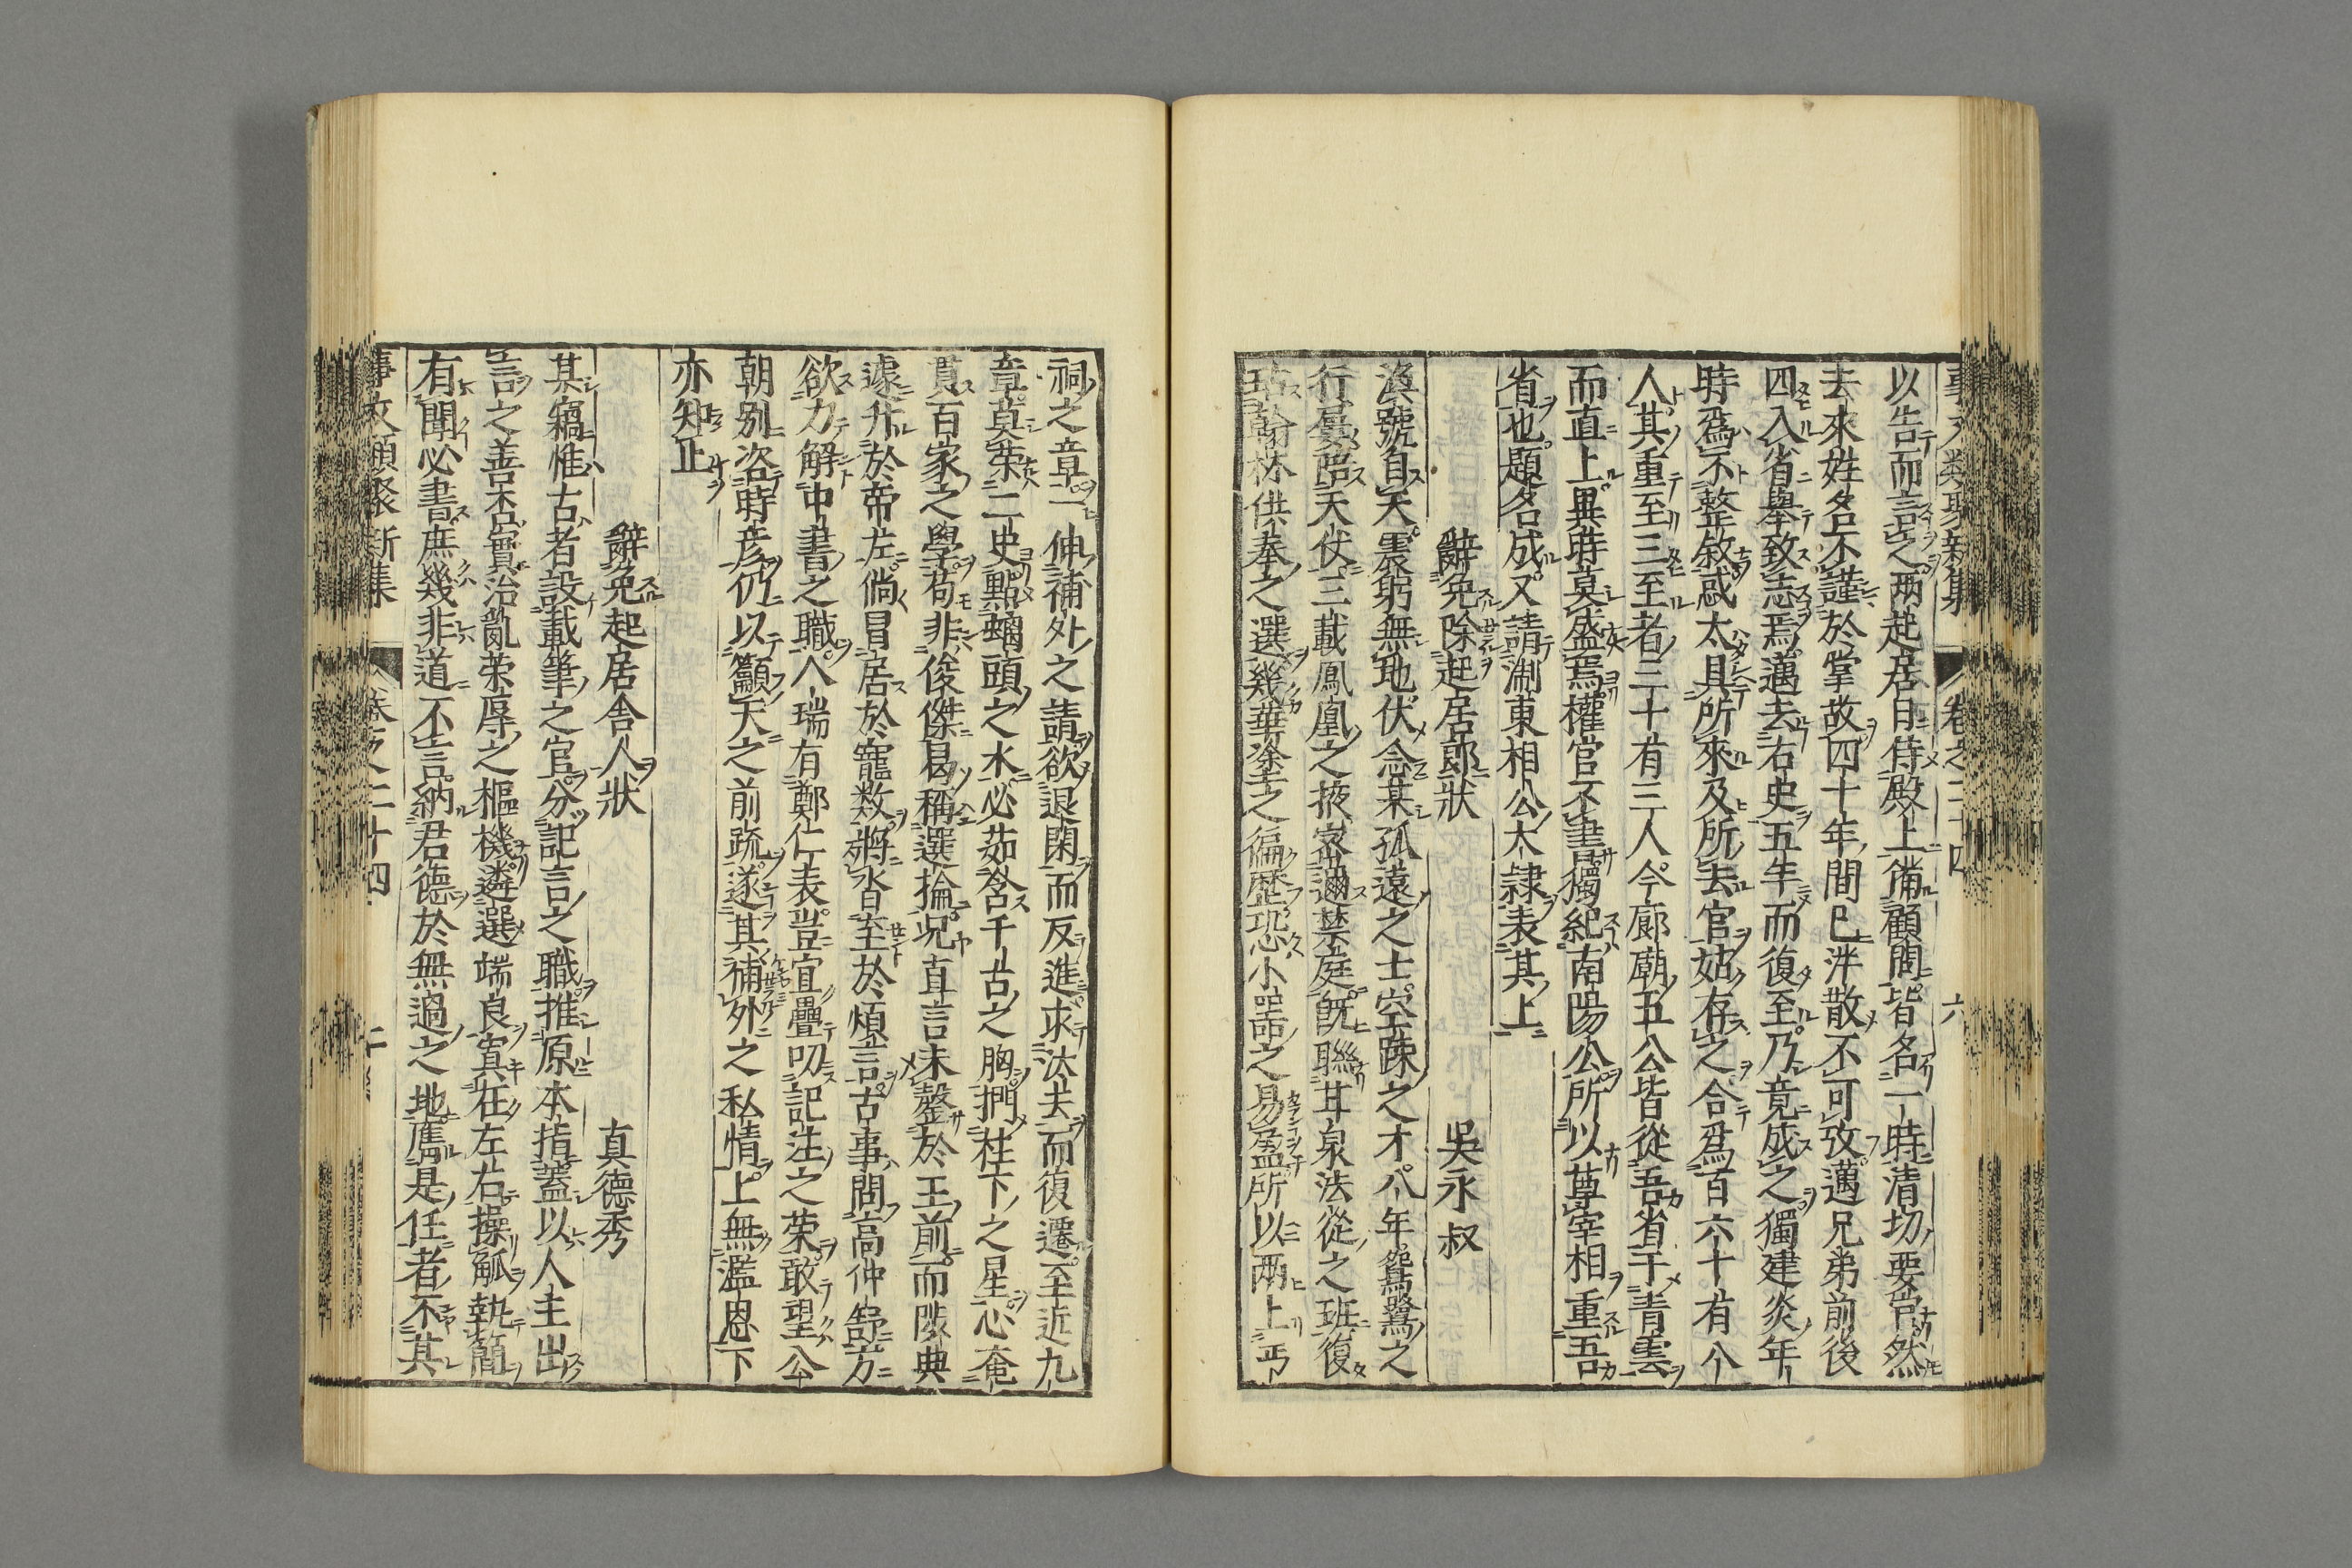 事文類聚新集 卷之二十四 六
以告而言之两起居日侍殿上備顧問皆名一時清切要官然
去來姓名不謹於掌故四十年間已泮散不可攷邁兄弟前後
四入省舉致志焉邁去右史五年而復至乃竟成之獨建炎年
時爲不整敘惑太具所來及所去官姑存之合爲百六十有八
人其重至三至者三十有三人今廊廟五公皆從吾省干青雲
而直上異時莫盛焉權官不書獨紀南陽公所以尊宰相重吾
省也題名成又請淛東相公大隷表其上
辭免除起居郎狀 吳永叔
渙號自天震躬無地伏念某孤遠之士空疎之才八年鴛鷺之
行屢陪天仗三載鳳凰之掖密邇禁庭旣聯甘泉法從之班復
玷翰林供奉之選幾華塗之徧歷恐小器之易盈所以兩上丐
祠之章一伸補外之請欲退閑而反進求汰去而復遷至近九
章莫榮二史點螭頭之水必茹含千古之胸捫柱下之星必奄
貫百家之學苟非俊傑曷稱選掄况直言未罄於王前而陟典
遽升於帝左倘冒居於寵数將沓至於煩言古事問高仲舒方
欲力解中書之職八瑞有鄭仁表豈宜疊叨記注之荣敢望公
朝别咨時彦仍以籲天之前疏遂其補外之私情上無濫恩下
亦知止
辭免起居舍人狀 真德秀
其竊惟古者設載筆之官分記言之職推原本指蓋以人主出
言之善否實治亂荣辱之樞機遴選端良寘在左右操觚執簡
有聞必書庶幾非道不言納君德於無過之地膺是任者不其
事文類聚新集 卷之二十四